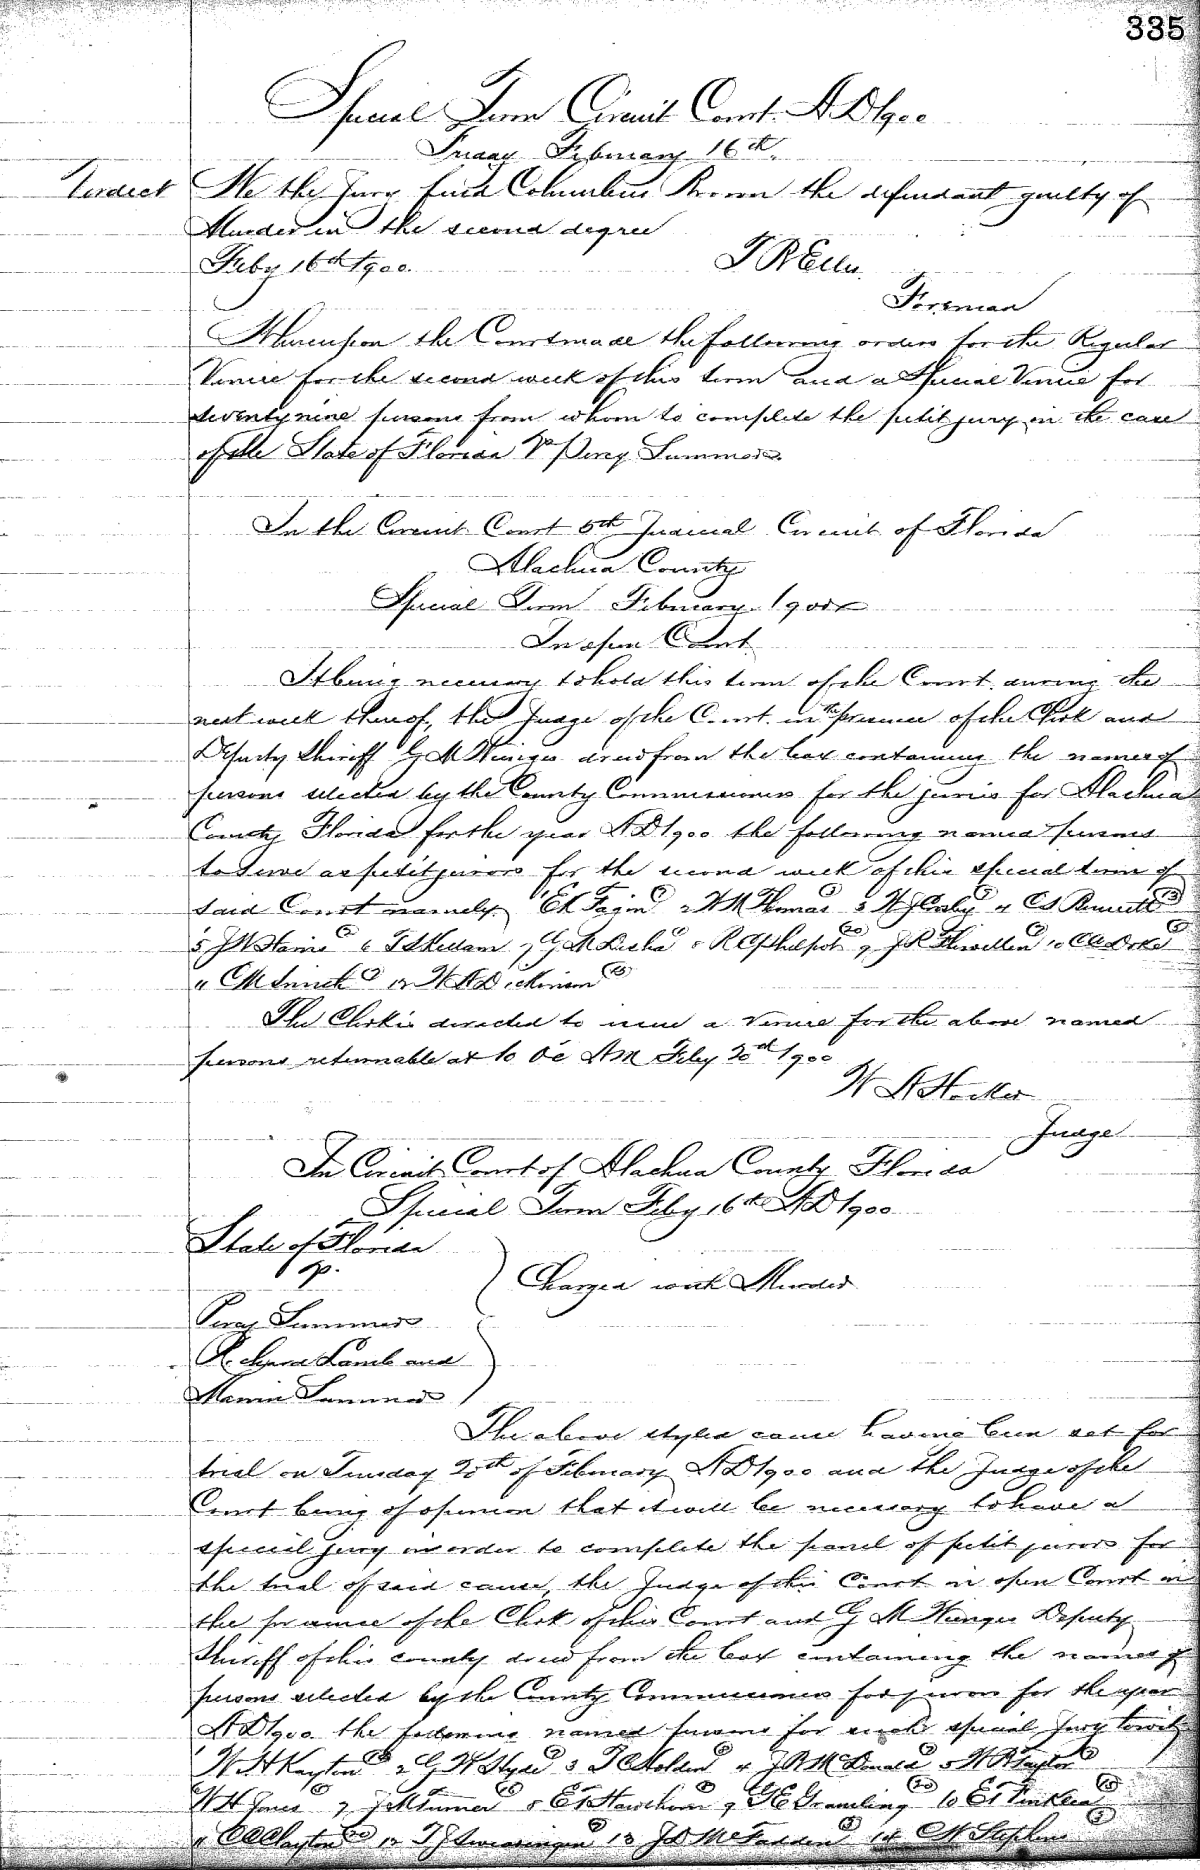 335
Special Term Circuit Court. A D 1900
Friday February 16th.
Verdict We the Jury find Columbus Brown the defendant guilty of
Murder in the second degree
Feby 16th 1900. T R Ellis.
Foreman
Whereupon the Court made the following orders for the Regular
Venire for the second week of this term and a Special Venire for
seventy nine persons from whom to complete the petit jury in the case
of the State of Florida Vs Percy Summers.
In the Circuit Court 5th Judicial Circuit of Florida
Alachua County
Special Term February 1900
In open Court
It being necessary to hold this term of the Court during the
next week thereof, the Judge of the Court in the presence of the Clerk and
Deputy Sheriff G M drew from the box containing the names of
persons selected by the County Commissioners for the juries for Alachua
County Florida for the year A D 1900 the following named persons
to serve as petit jurors for the second week of this special term of
said Court namely 1 E K Fagin 2 W M Thomas 3 W J 4 C S Bennett
5 J W Harris 6 7 G M 8 R C Philpot 9 J R 10
11 C M 12 W A Dickinson
The Clerk is directed to issue a Venire for the above named
persons returnable at 10 Oc AM Feby 20th 1900
W A Hocker
Judge
In Circuit Court of Alachua County Florida
Special Term Feby 16th A D 1900
State of Florida
Vs. Charged with Murder
Percy Summers
Richard Lamb and
Mamie Summers
The above styled cause having been set for
trial on Tuesday 20th of February A D 1900 and the Judge of the
Court being of opinion that it will be necessary to have a
special jury in order to complete the panel of petit jurors for
the trial of said cause, the Judge of this Court in open Court in
the presence of the Clerk of this Court and G M Deputy
Sheriff of this county drew from the box containing the names of
persons selected by the County Commissioners for jurors for the year
A D 1900 the following named persons for such special Jury towit
1 W H Kayton 2 G W Hyde 3 T C Holden 4 J R McDonald 5 W R Taylor
W H Jones 7 J M Turner 8 E T Hawthorn 9 Gramling 10
11 C C Clayton 12 T J Swearingen 13 J D McFadden 14 C M Stephens